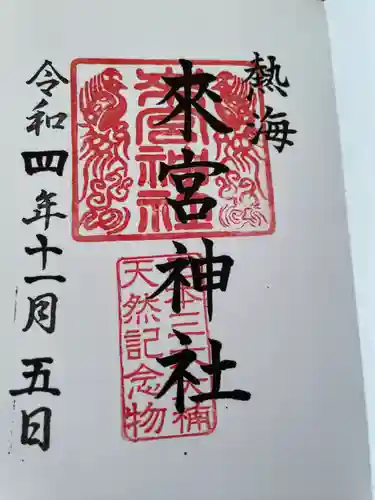 熱海
來宮神社
來宮神社
日本三大大楠
天然記念物
令和四年十一月五日